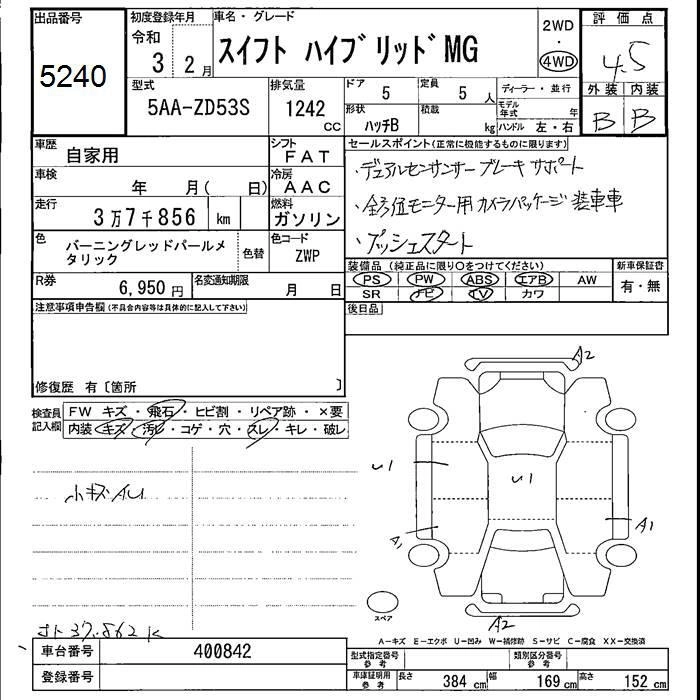 出品番号 初度登録年月 車名・グレード 2WD ・ 4WD 評価点
5240 令和 3 2月 スイフト ハイブリッド MG 4.5
型式 排気量 ドア 定員 ディーラー・並行 外装 内装
5AA-ZD53S 1242 CC 5 5 人 モデル年式 年 B B
形状 ハッチB 積載 kg ハンドル 左・右
車歴 自家用 シフト FAT セールスポイント(正常に機能するものに限ります)
車検 年 月( 日) 冷房 AAC ・デュアルセンサンサーブレーキサポート
走行 3万7千856 km 燃料 ガソリン ・全方位モニター用カメラパッケージ装車車
色 バーニングレッドパールメタリック 色替 色コード ZWP ・プッシュスタート
R券 6,950円 名変通知期限 月 日 装備品(純正品に限り○をつけてください) 新車保証書
PS PW ABS エアB AW 有・無
SR ナビ TV カワ
注意事項申告欄(不具合内容等は具体的に記入して下さい) 後日品
修復歴 有〔箇所 〕
検査員記入欄 FW キズ・飛石・ヒビ割・リペア跡・×要
内装 キズ・汚レ・コゲ・穴・スレ・キレ・破レ
A2
U1 U1
A1 A1
小キズAU
スペア A2
オト37.862K
A-キズ E-エクボ U-凹み W-補修跡 S-サビ C-腐食 XX-交換済
車台番号 400842 型式指定番号 参考 類別区分番号 参考
登録番号 車庫証明用 参考 長さ 384 cm 幅 169 cm 高さ 152 cm